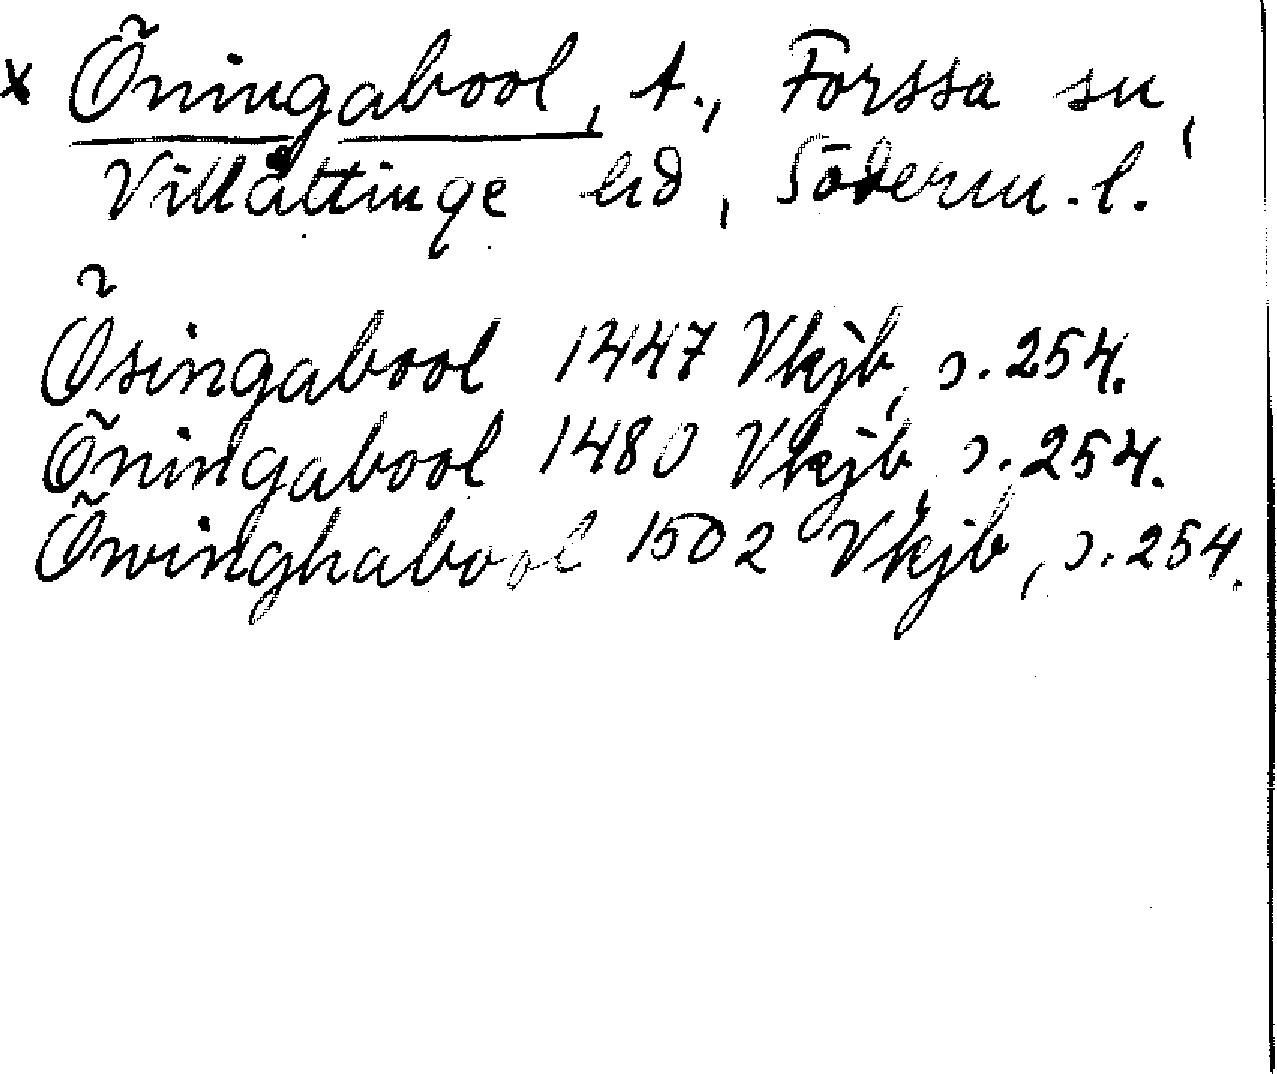 x Öningabool, t., Forssa sn,
Villåttinge hd, Söderm. l.
Ösingabool 1447 Vkjb, s. 254.
Öningabool 1480 Vkjb, s. 254.
Öwinghabool 1502 Vkjb, s. 254.